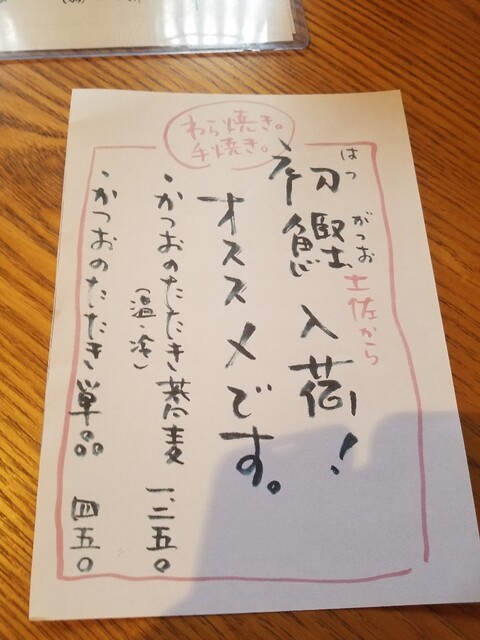 わら焼き。
手焼き。
はつ がつお
初鰹入荷!
土佐から
オススメです。
・かつおのたたき蕎麦 一、二五〇
(温・冷)
・かつおのたたき単品 四五〇